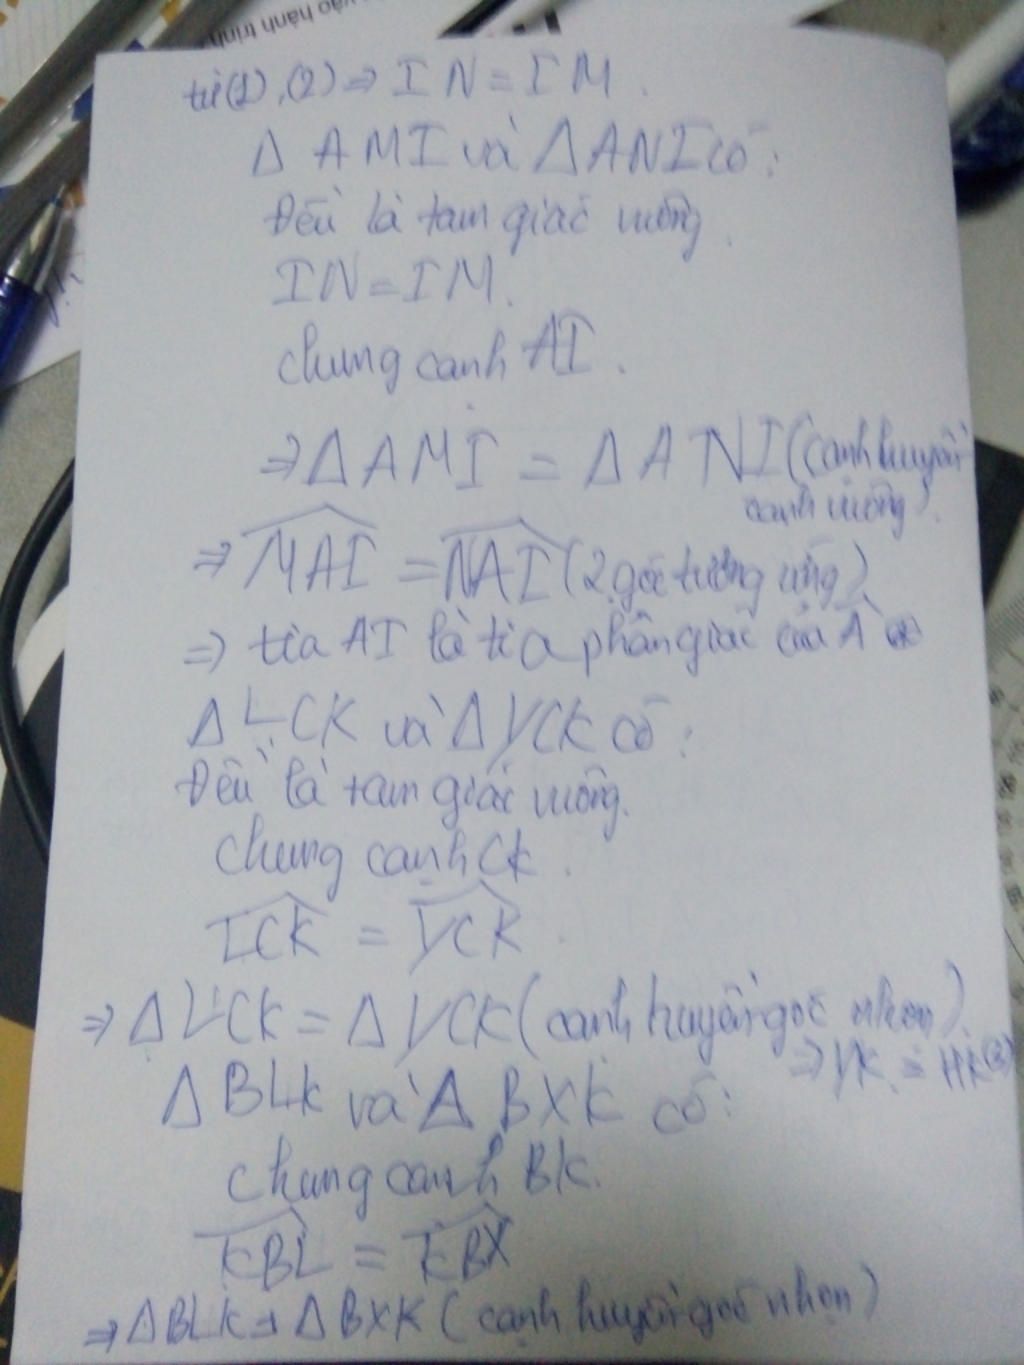 vào hành trình
từ (1), (2) ⇒ IN = IM.
Δ AMI và ΔANI có:
Đều là tam giác vuông.
IN = IM.
chung cạnh AI.
⇒ Δ AMI = Δ ANI (cạnh huyền
cạnh vuông).
⇒ MAI = NAI (2 góc tương ứng)
⇒ tia AI là tia phân giác của A
Δ LCK và Δ YCK có:
Đều là tam giác vuông.
Chung cạnh CK.
LCK = YCK.
⇒ Δ LCK = Δ YCK (cạnh huyền góc nhọn)
⇒ YK = HK (3)
Δ BLK và Δ BXK có:
chung cạnh BK.
KBL = KBX
⇒ Δ BLK = Δ BXK (cạnh huyền góc nhọn)